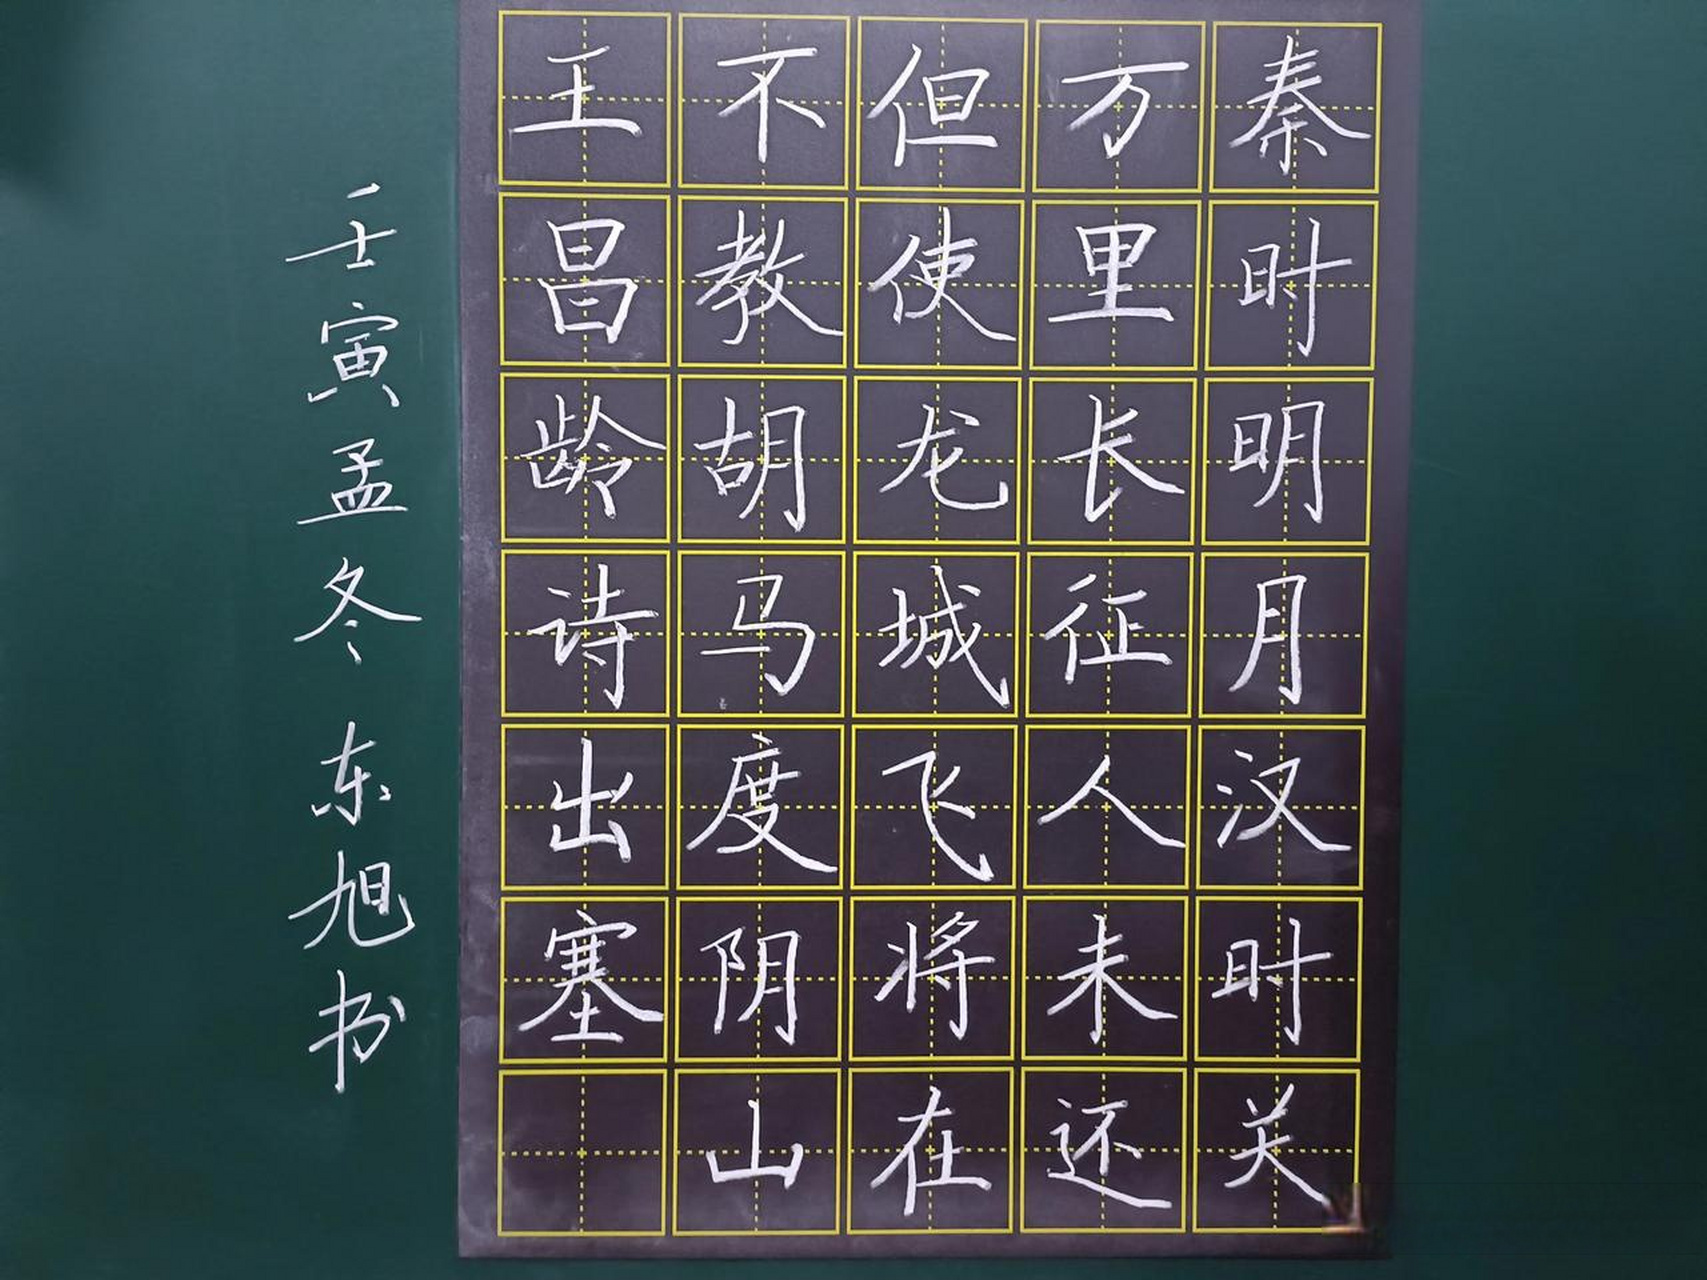 秦时明月汉时关
万里长征人未还
但使龙城飞将在
不教胡马度阴山
王昌龄诗出塞
壬寅孟冬 东旭书